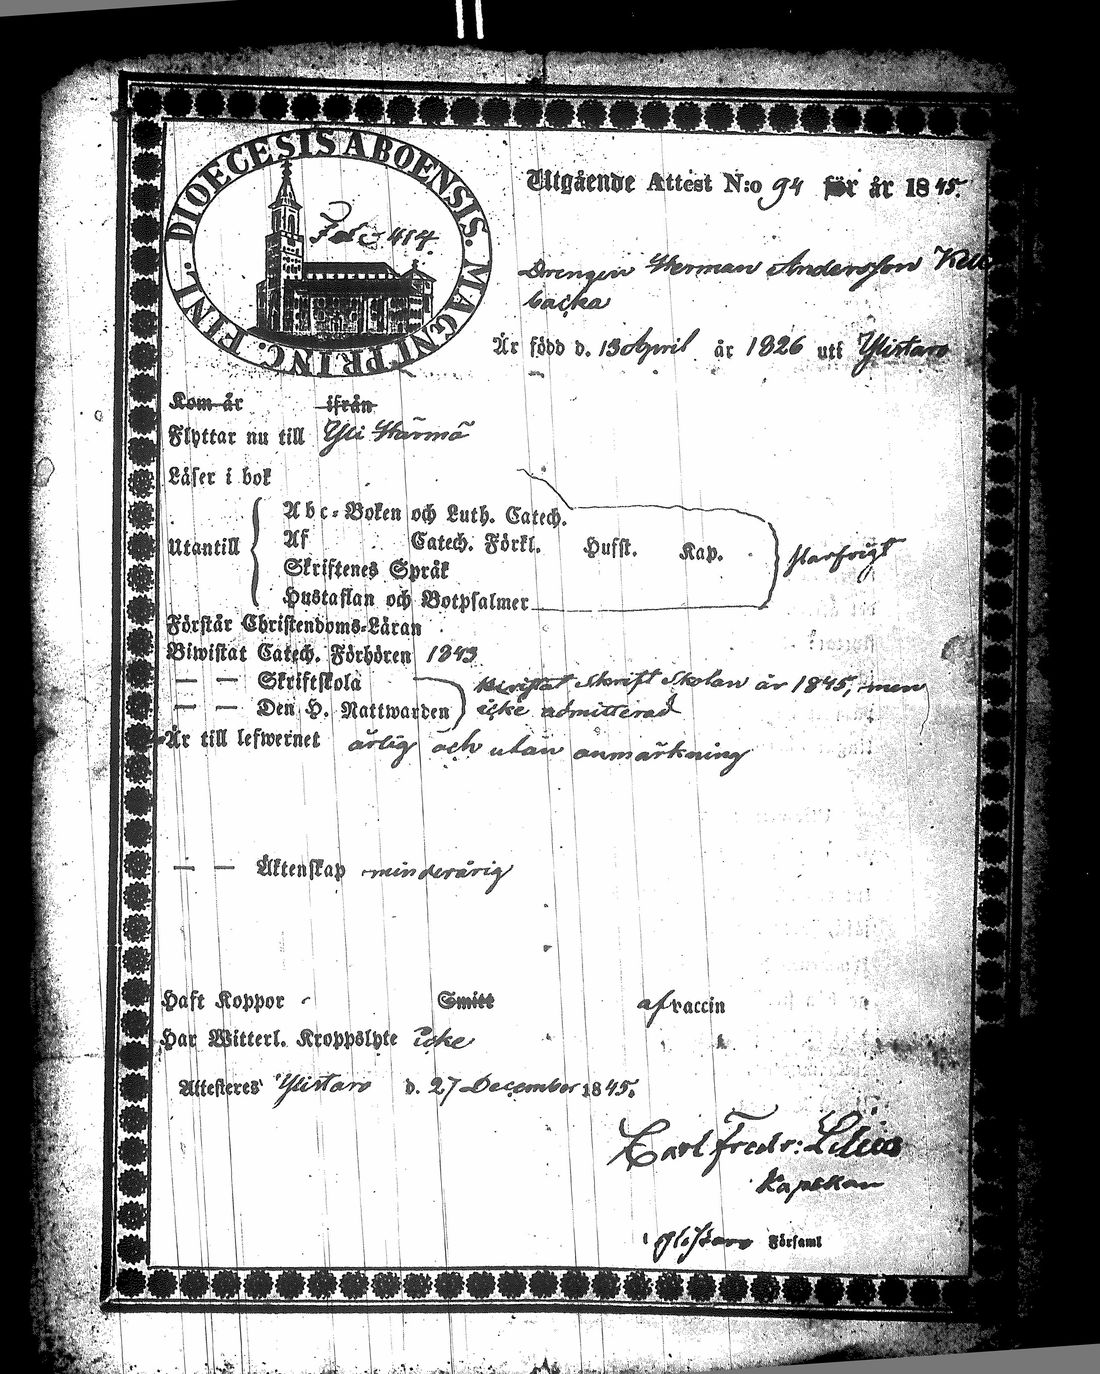 DIOECESIS ABOENSIS. MAGNI PRINC. FINL.
Fol 414.
Utgående Attest N:o 94 för år 1845.
Drengen Herman Andersson
backa
Är född d. 13 April år 1826 uti Ylistaro
Kom år ifrån
Flyttar nu till Yli Härmä
Läser i bok
Utantill
Abc-Boken och Luth. Catech.
Af Catech. Förkl. Husst. Kap.
Skriftenes Språk
Hustaflan och Botpsalmer
Förstår Christendoms-Läran
Biwistat Catech. Förhören 1843
— — Skriftskola Bevistat Skrift Skolan år 1845, men
— — Den H. Nattwarden icke admitterad
Är till lefwernet ärlig och utan anmärkning
— — Äktenskap minderårig
Haft Koppor Smitt af vaccin
Har Witterl. Kroppslyte icke
Attesteres Ylistaro d. 27 December 1845.
Carl Fredr: Lilius
Kapellan
i Ylistaro Församl